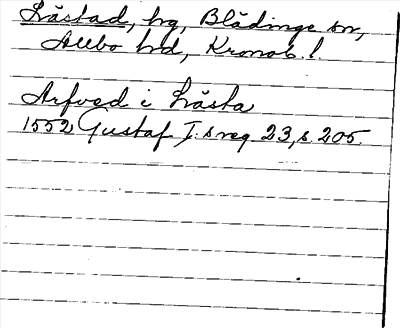 Låstad, hg, Blädinge sn,
Allbo hd, Kronob. l.
Arfved i Låsta
1552 Gustaf I:s reg 23, s. 205.